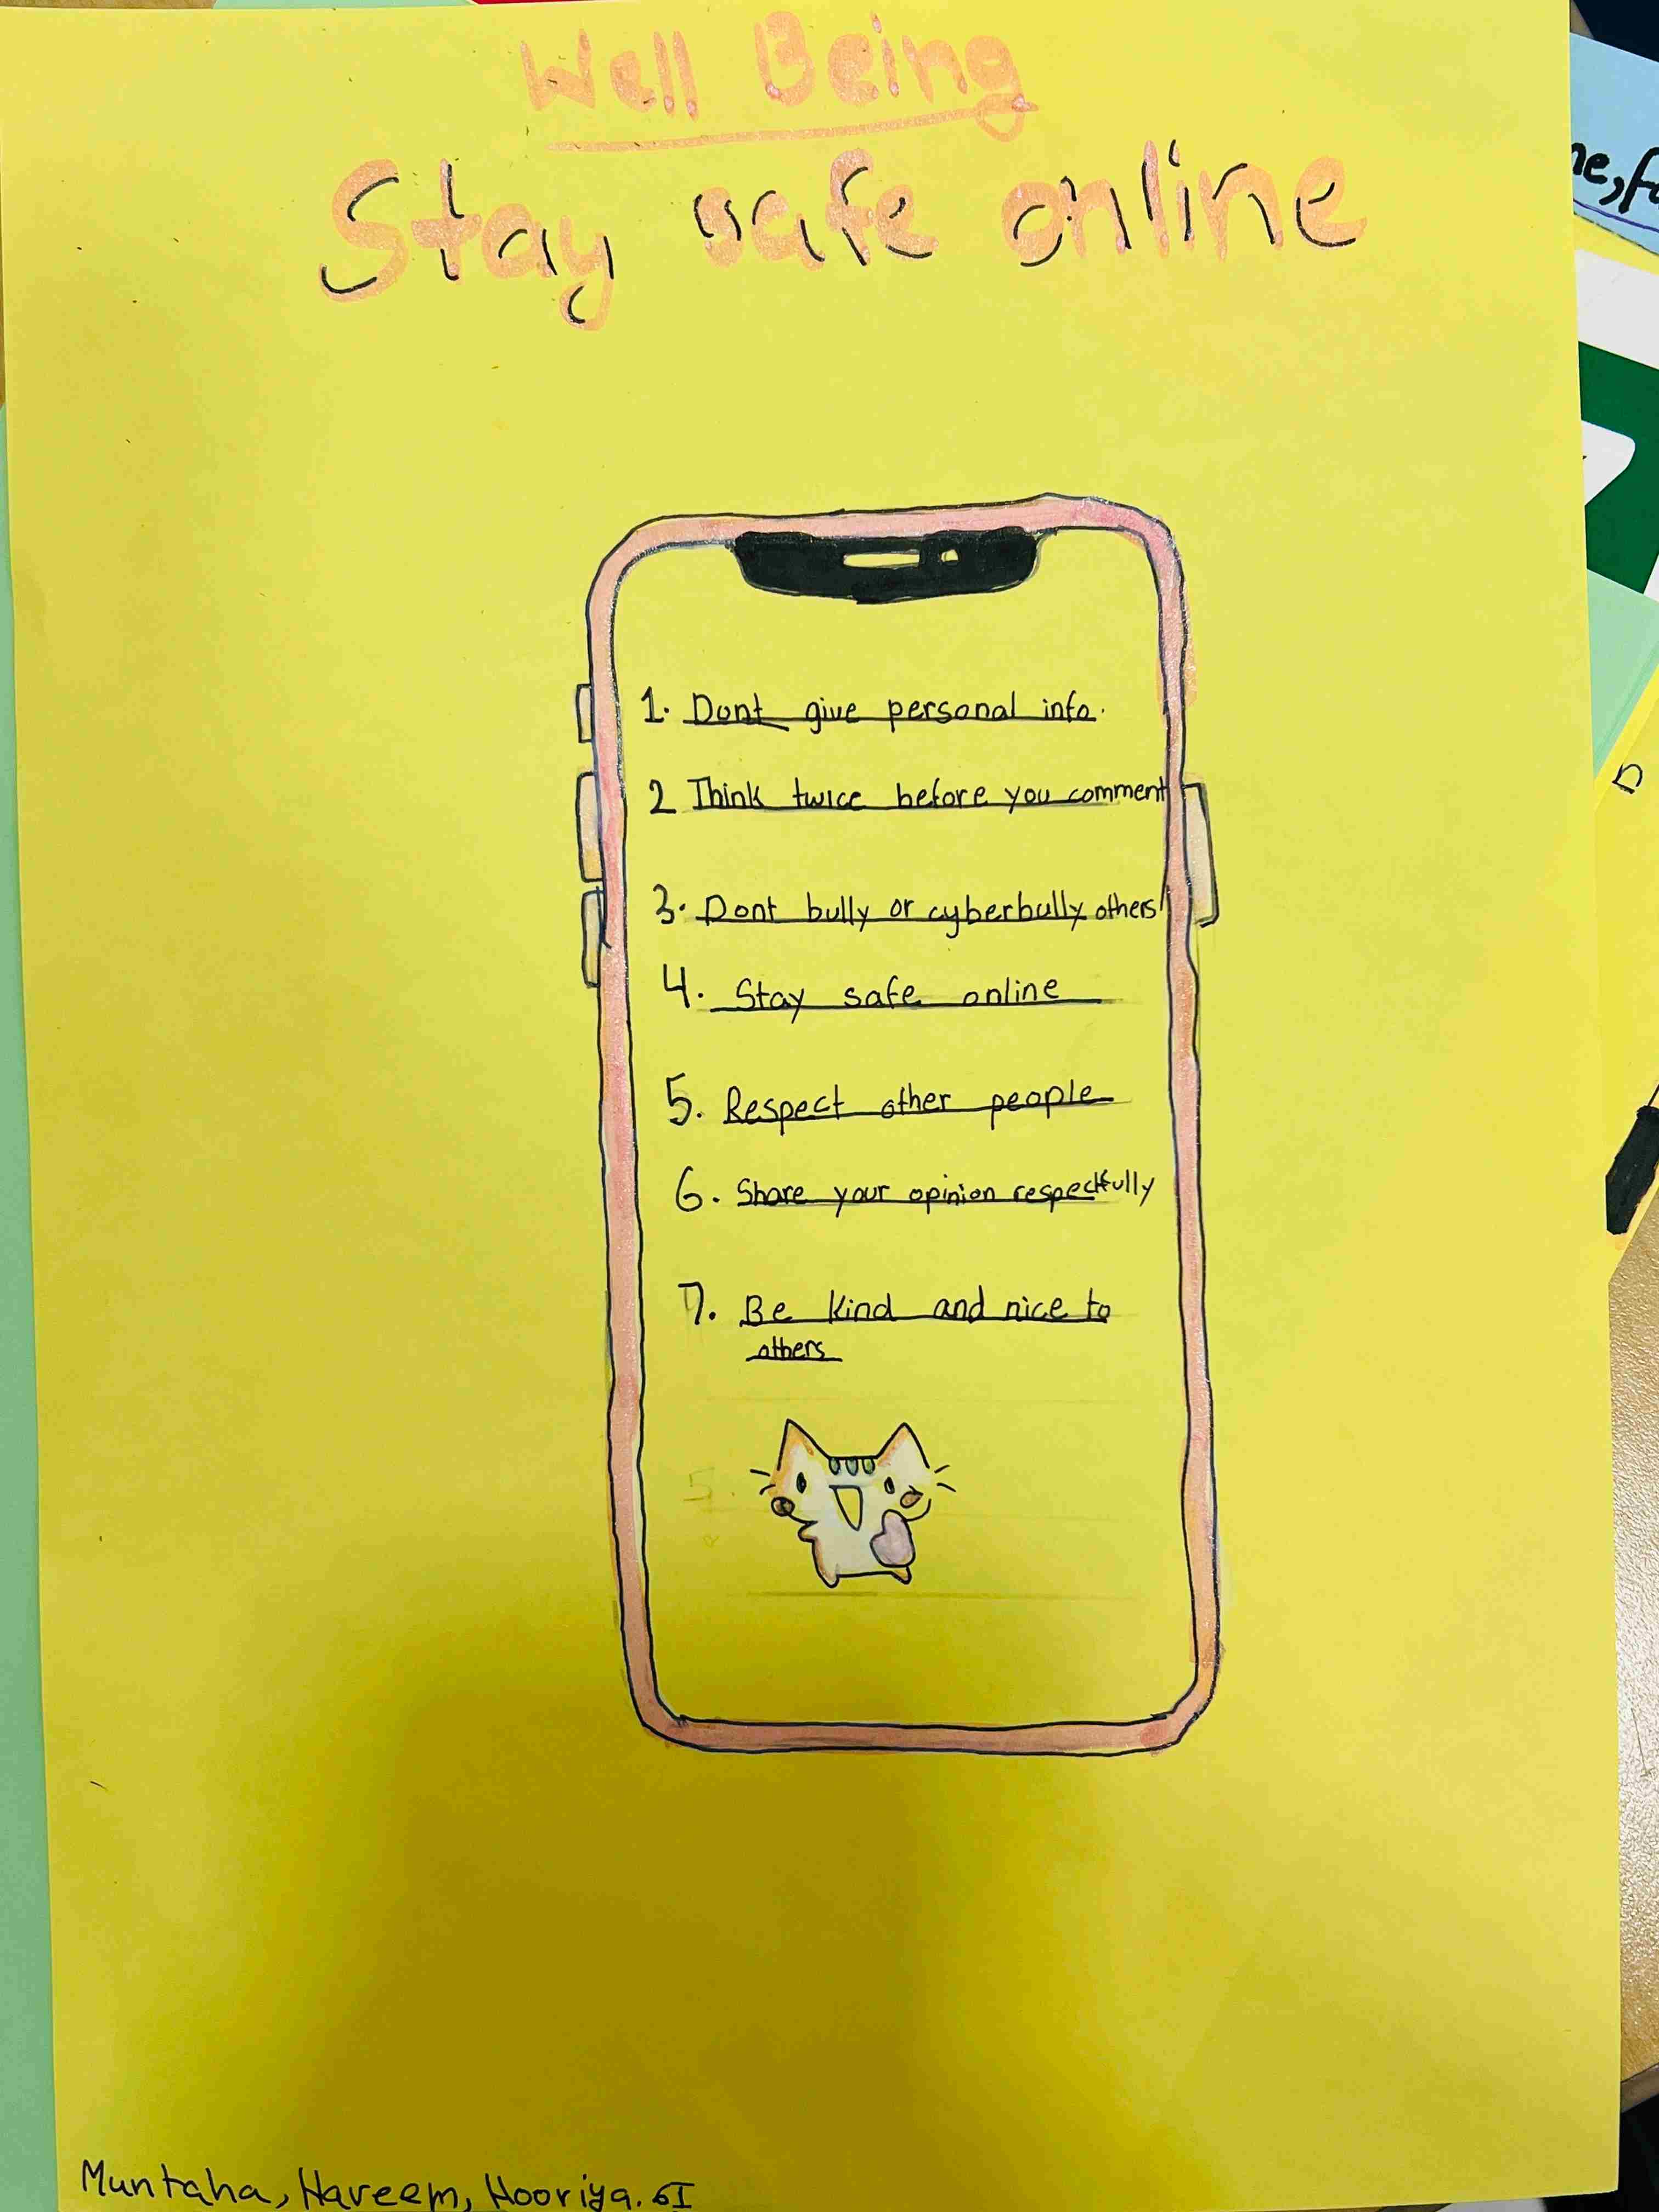 Well Being
Stay safe online
1. Dont give personal info.
2 Think twice before you comment
3. Dont bully or cyberbully others!
4. Stay safe online
5. Respect other people
6. Share your opinion respectfully
7. Be kind and nice to
others
5.
Muntaha, Hareem, Hooriya. 6I